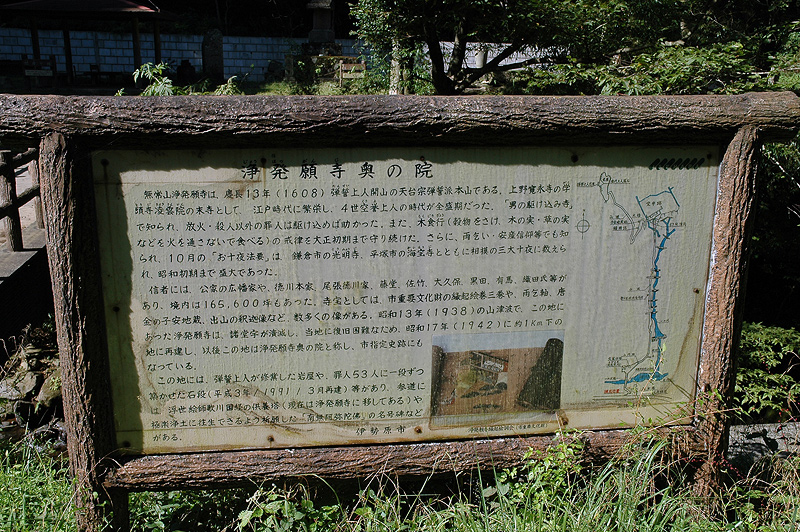 浄発願寺奥の院
無常山浄発願寺は、慶長13年（1608）弾誓上人開山の天台宗弾誓派本山である。上野寛永寺の学
頭寺凌雲院の末寺として、江戸時代に繁栄し、4世空誉上人の時代が全盛期だった。「男の駆け込み寺」
で知られ、放火・殺人以外の罪人は駆け込めば助かった。また、木食行（穀物をさけ、木の実・草の実
などを火を通さないで食べる）の戒律を大正初期まで守り続けた。さらに、雨乞い・安産信仰等でも知
られ、10月の「お十夜法要」は、鎌倉市の光明寺、平塚市の海宝寺とともに相模の三大十夜に数えら
れ、昭和初期まで盛大であった。
信者には、公家の広幡家や、徳川本家、尾張徳川家、藤堂、佐竹、大久保、黒田、有馬、織田氏等が
あり、境内は165,600坪もあった。寺宝としては、市重要文化財の縁起絵巻三巻や、雨乞軸、唐
金の子安地蔵、出山の釈迦像など、数多くの像がある。昭和13年（1938）の山津波で、この地に
あった浄発願寺は、諸堂宇が潰滅し、当地に復旧困難なため、昭和17年（1942）に約1km下の
地に再建し、以後この地は浄発願寺奥の院と称し、市指定史跡にも
なっている。
この地には、弾誓上人が修業した岩屋や、罪人53人に一段ずつ
築かせた石段（平成3年/1991/3月再建）等があり、参道に
は、浮世絵師歌川国経の供養塔（現在は浄発願寺に移してある）や
極楽浄土に往生できるよう祈願した「南無阿弥陀佛」の名号碑など
がある。
伊勢原市